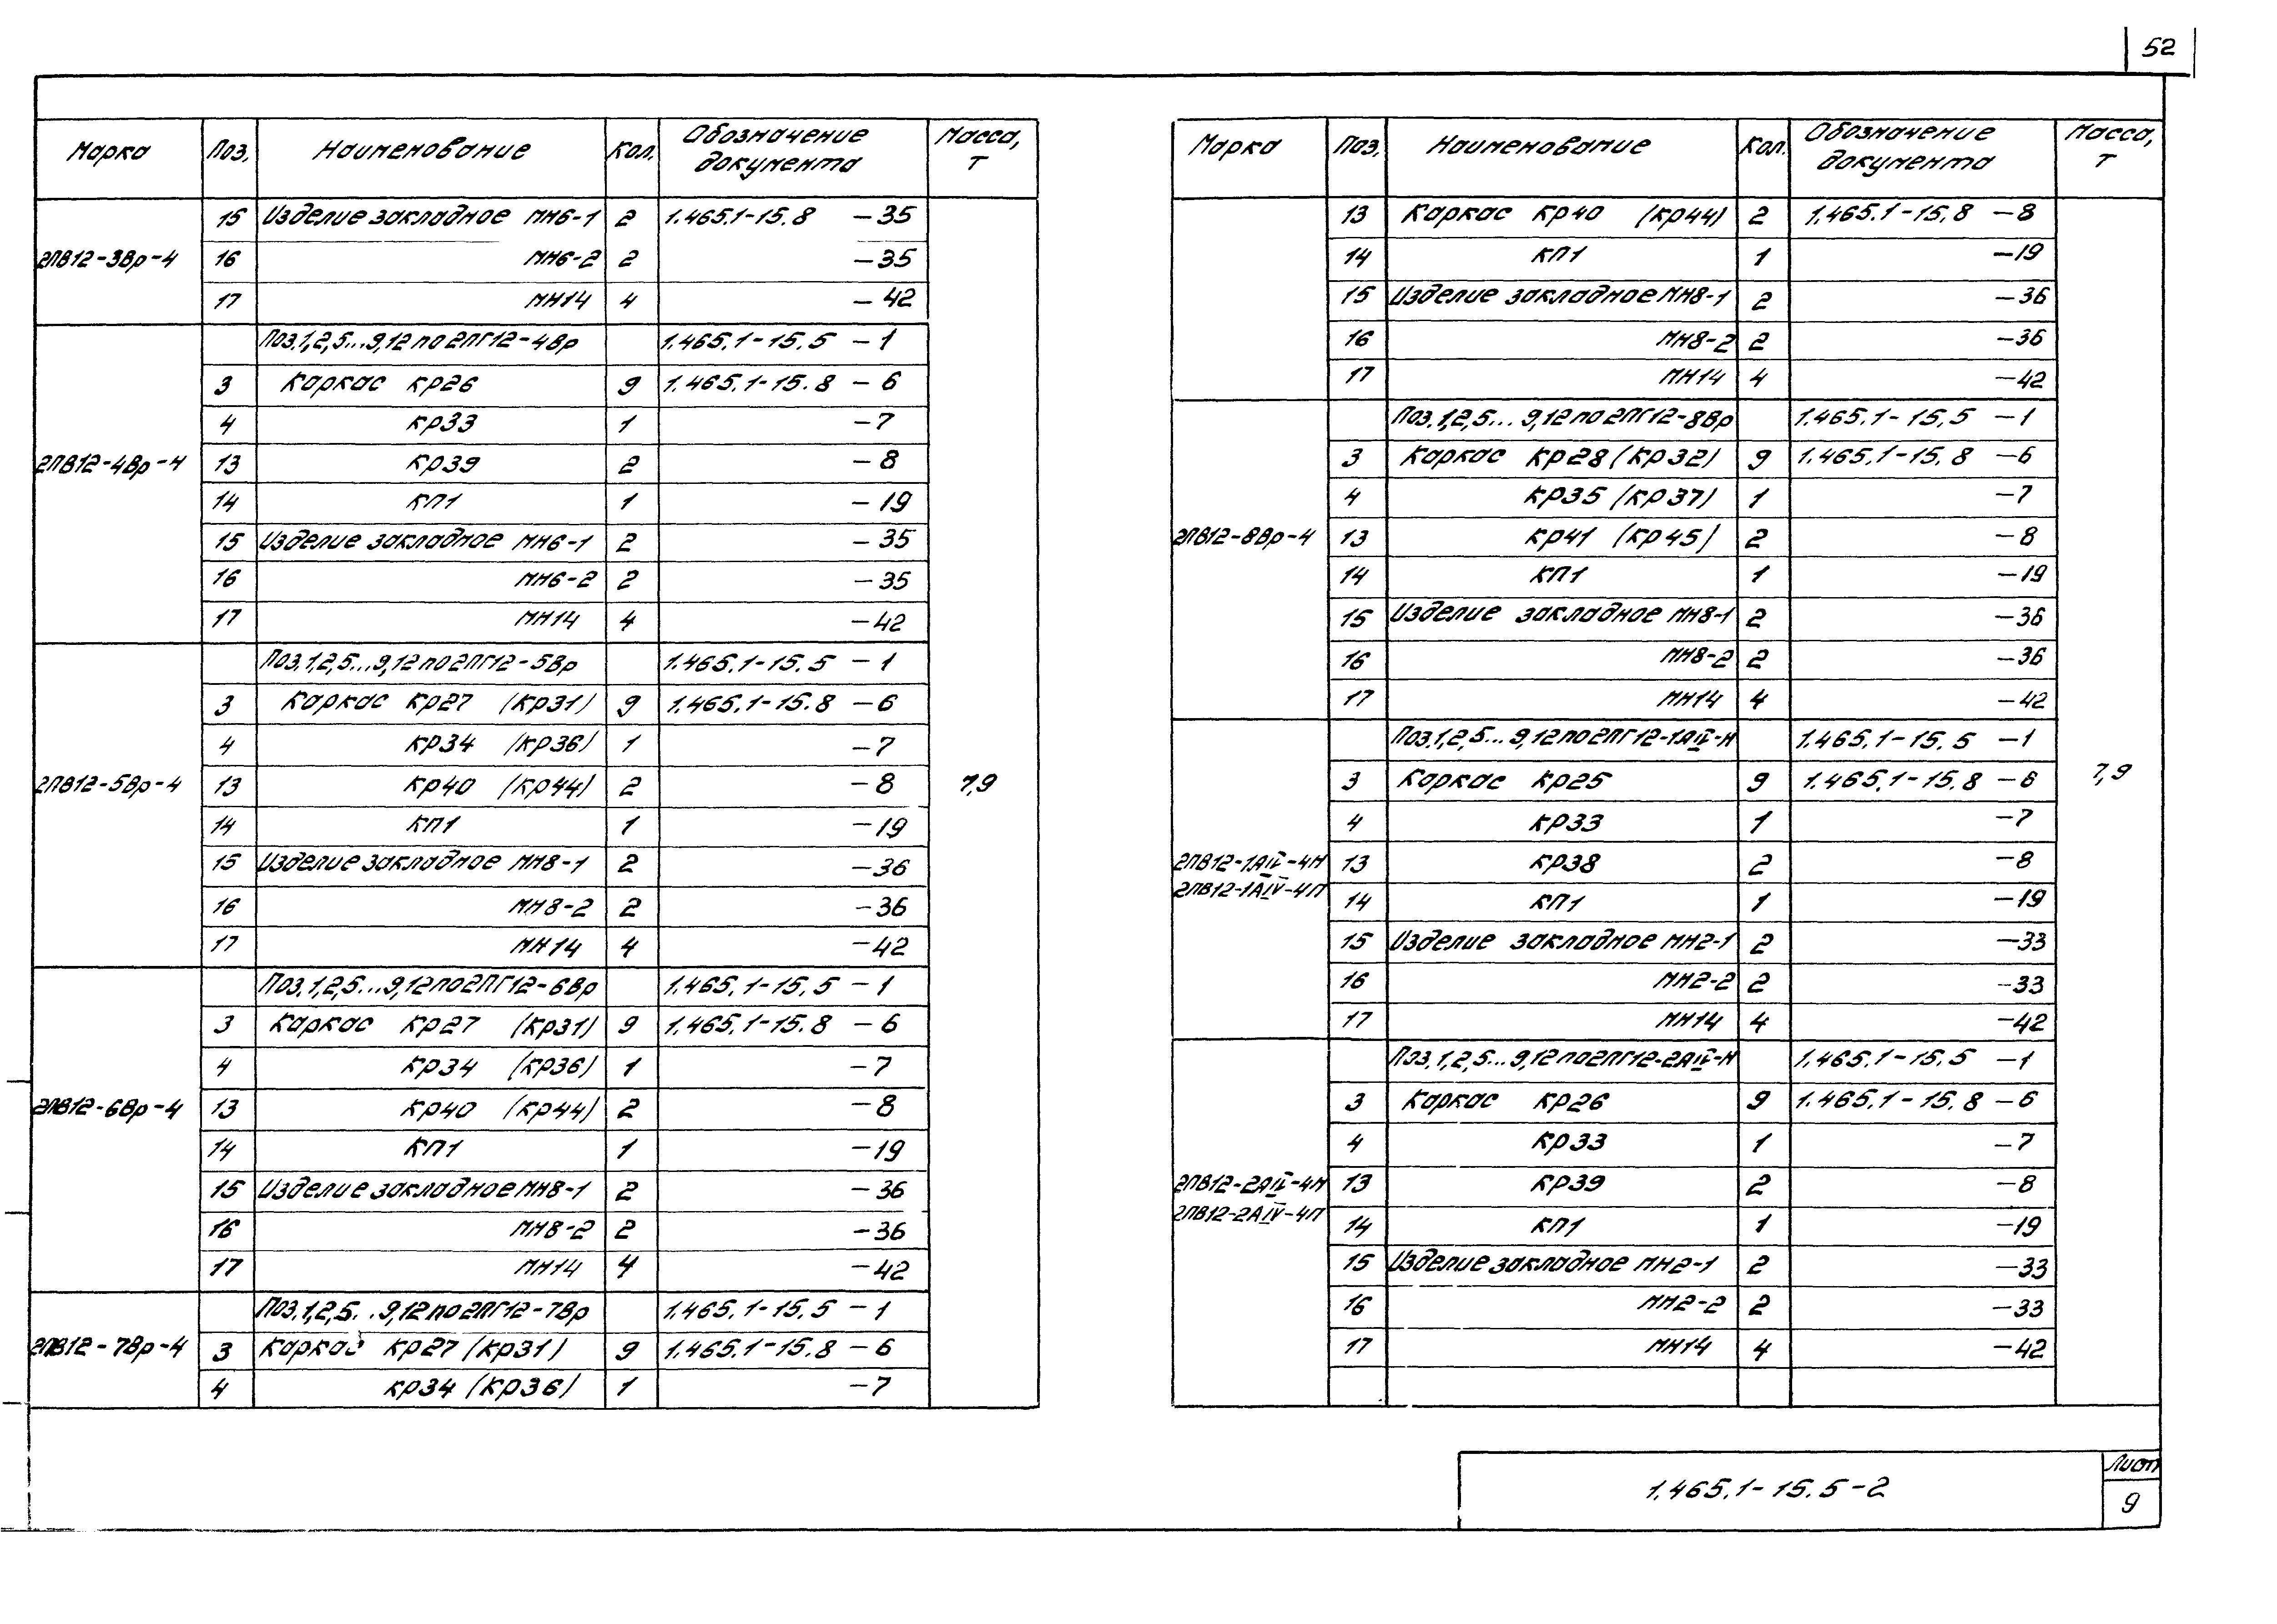 52
Марка Поз. Наименование Кол. Обозначение документа Масса, т
15 Изделие закладное МН6-1 2 1.465.1-15.8 -35
2ПВ12-3Вр-4 16 МН6-2 2 -35
17 МН14 4 -42
Поз.1,2,5...9,12 по 2ПГ12-4Вр 1.465.1-15.5 -1
3 Каркас КР26 9 1.465.1-15.8 -6
4 КР33 1 -7
2ПВ12-4Вр-4 13 КР39 2 -8
14 КП1 1 -19
15 Изделие закладное МН6-1 2 -35
16 МН6-2 2 -35
17 МН14 4 -42
Поз.1,2,5...9,12 по 2ПГ12-5Вр 1.465.1-15.5 -1
3 Каркас КР27 (КР31) 9 1.465.1-15.8 -6
4 КР34 (КР36) 1 -7
2ПВ12-5Вр-4 13 КР40 (КР44) 2 -8 7,9
14 КП1 1 -19
15 Изделие закладное МН8-1 2 -36
16 МН8-2 2 -36
17 МН14 4 -42
Поз.1,2,5...9,12 по 2ПГ12-6Вр 1.465.1-15.5 -1
3 Каркас КР27 (КР31) 9 1.465.1-15.8 -6
4 КР34 (КР36) 1 -7
2ПВ12-6Вр-4 13 КР40 (КР44) 2 -8
14 КП1 1 -19
15 Изделие закладное МН8-1 2 -36
16 МН8-2 2 -36
17 МН14 4 -42
Поз.1,2,5...9,12 по 2ПГ12-7Вр 1.465.1-15.5 -1
2ПВ12-7Вр-4 3 Каркас КР27 (КР31) 9 1.465.1-15.8 -6
4 КР34 (КР36) 1 -7
Марка Поз. Наименование Кол. Обозначение документа Масса, т
13 Каркас КР40 (КР44) 2 1.465.1-15.8 -8
14 КП1 1 -19
15 Изделие закладное МН8-1 2 -36
16 МН8-2 2 -36
17 МН14 4 -42
Поз.1,2,5...9,12 по 2ПГ12-8Вр 1.465.1-15.5 -1
3 Каркас КР28 (КР32) 9 1.465.1-15.8 -6
4 КР35 (КР37) 1 -7
2ПВ12-8Вр-4 13 КР41 (КР45) 2 -8
14 КП1 1 -19
15 Изделие закладное МН8-1 2 -36
16 МН8-2 2 -36
17 МН14 4 -42
Поз.1,2,5...9,12 по 2ПГ12-1АIV-Н 1.465.1-15.5 -1
3 Каркас КР25 9 1.465.1-15.8 -6 7,9
4 КР33 1 -7
2ПВ12-1АIV-4Н 13 КР38 2 -8
2ПВ12-1АIV-4П 14 КП1 1 -19
15 Изделие закладное МН2-1 2 -33
16 МН2-2 2 -33
17 МН14 4 -42
Поз.1,2,5...9,12 по 2ПГ12-2АIV-Н 1.465.1-15.5 -1
3 Каркас КР26 9 1.465.1-15.8 -6
4 КР33 1 -7
2ПВ12-2АIV-4Н 13 КР39 2 -8
2ПВ12-2АIV-4П 14 КП1 1 -19
15 Изделие закладное МН2-1 2 -33
16 МН2-2 2 -33
17 МН14 4 -42
1.465.1-15.5-2
Лист
9